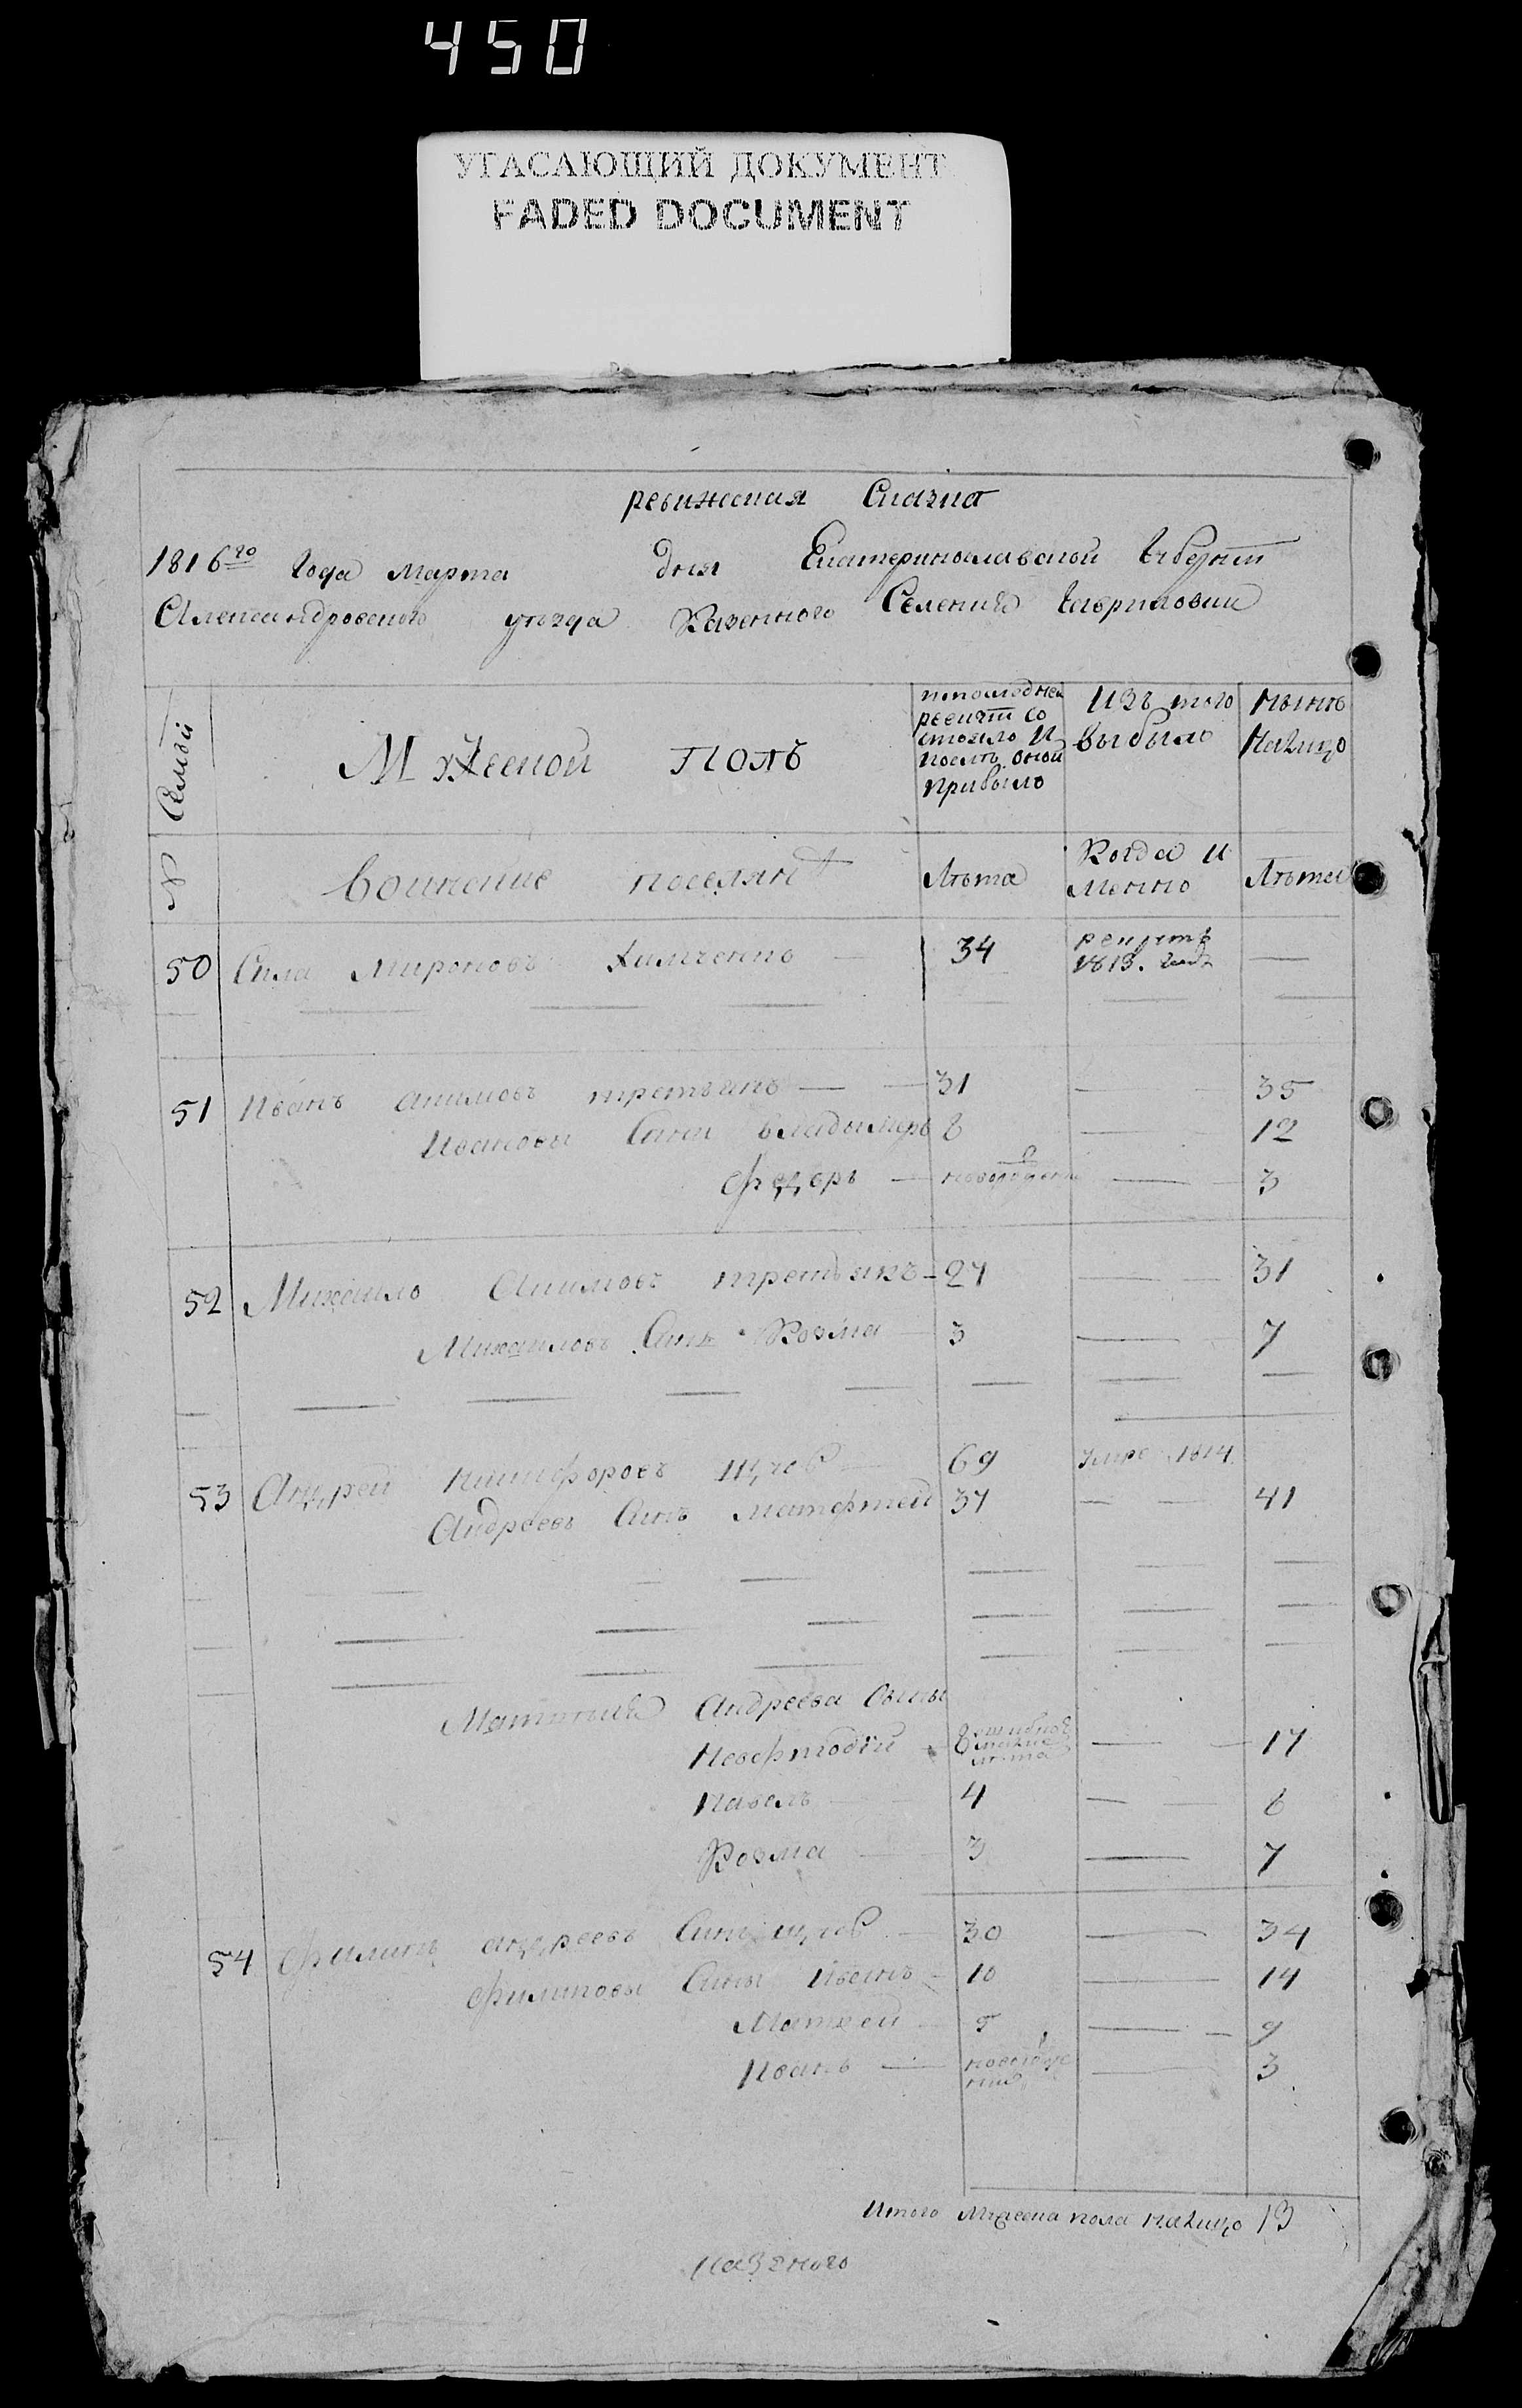 450
УГАСАЮЩИЙ ДОКУМЕНТ
FADED DOCUMENT
ревижская Сказка
1816го года Марта дня Екатеринославской Губернiи
Александровского уѣзда Казенного Селения Гавриловки
Семьи
Мужеской полъ
по последней ревизiи состояло и послѣ оной прибыло
Изъ того выбыло
Нынѣ налицо
№
Воинские поселянѣ
Лѣта
Когда и мянно
Лѣта
50 Сила Мироновъ Химченко — 34 рекрутъ 1813. годѣ —
51 Иванъ Акимовъ третьякъ — 31 — 35
Ивановы Сыни владимеръ 8 — 12
Федеръ — новорожденъ — 3
52 Михаило Акимовъ третьякъ — 27 — 31
Михаиловъ Синъ Козма — 3 — 7
53 Андрей Никифоровъ — 69 умре 1814
Андреевъ Синъ Матфтей 37 — — 41
Андреева Сыны
8 — 17
Павелъ — 4 — 8
Козма — 3 — 7
54 Филипъ андреевъ Синъ — 30 — 34
Филиповы Сины Иванъ — 10 — 14
Матвей — 5 — 9
Иванъ — новорожденний — 3
Итого Мужеска пола налицо 13
Казеного